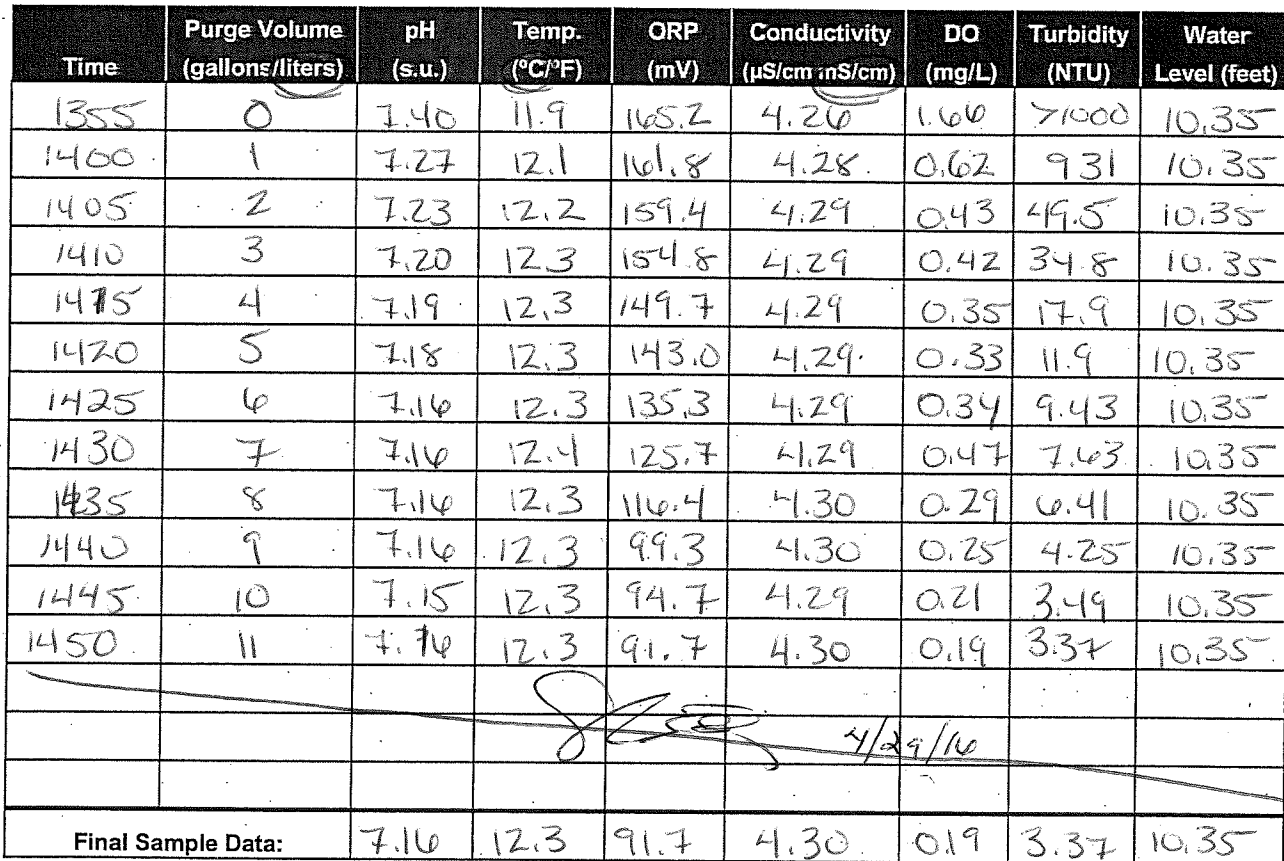 Time Purge Volume (gallons/liters) pH (s.u.) Temp. (°C/°F) ORP (mV) Conductivity (µS/cm mS/cm) DO (mg/L) Turbidity (NTU) Water Level (feet)
1355 0 7.40 11.9 165.2 4.26 1.66 >1000 10.35
1400 1 7.27 12.1 161.8 4.28 0.62 931 10.35
1405 2 7.23 12.2 159.4 4.29 0.43 49.5 10.35
1410 3 7.20 12.3 154.8 4.29 0.42 34.8 10.35
1415 4 7.19 12.3 149.7 4.29 0.35 17.9 10.35
1420 5 7.18 12.3 143.0 4.29 0.33 11.9 10.35
1425 6 7.16 12.3 135.3 4.29 0.34 9.43 10.35
1430 7 7.16 12.4 125.7 4.29 0.47 7.63 10.35
1435 8 7.16 12.3 116.4 4.30 0.29 6.41 10.35
1440 9 7.16 12.3 99.3 4.30 0.25 4.25 10.35
1445 10 7.15 12.3 94.7 4.29 0.21 3.49 10.35
1450 11 7.16 12.3 91.7 4.30 0.19 3.37 10.35
4/29/16
Final Sample Data: 7.16 12.3 91.7 4.30 0.19 3.37 10.35